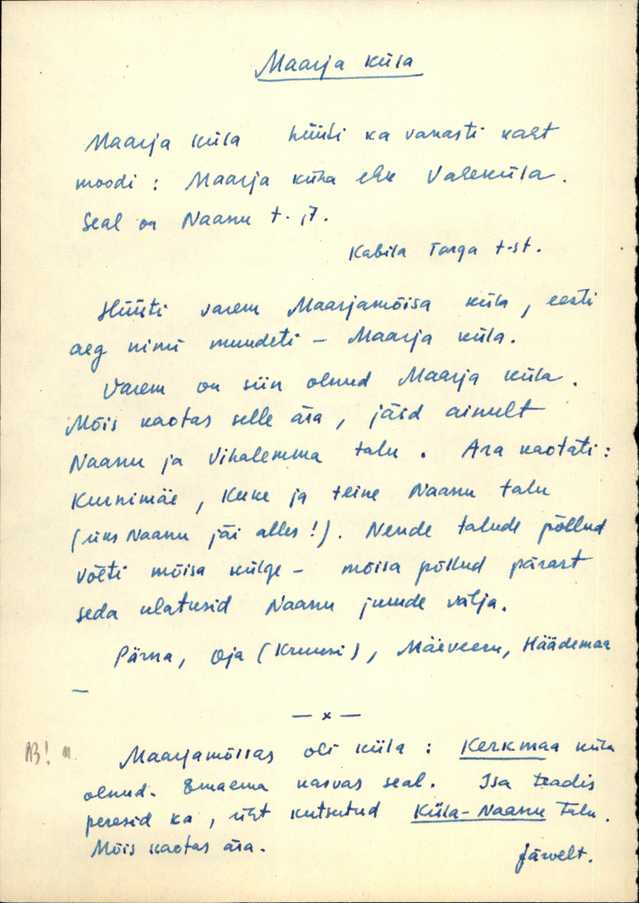 Maarja küla
Maarja küla hüüti ka vanasti kaht
moodi: Maarja küla ehk Valeküla.
Seal on Naanu t. j.
Kabila Targa t-st.
Hüüti varem Maarjamõisa küla, eesti
aeg nimi muudeti – Maarja küla.
Varem on siin olnud Maarja küla.
Mõis kaotas selle ära, jäid ainult
Naanu ja Vihalemma talu. Ära kaotati:
Kurnimäe, Kuke ja teine Naanu talu
(üks Naanu jäi alles!). Nende talude põllud
võeti mõisa külge – mõisa põllud pärast
seda ulatusid Naanu juurde välja.
Pärna, Oja (Kruusi), Mäeveeru, Häädemaa
–
– x –
Maarjamõisas oli küla: Kerkmaa küla
olnud. Emaema kasvas seal. Isa teadis
peresid ka, üht kutsutud Küla-Naanu talu.
Mõis kaotas ära.
Järvelt.